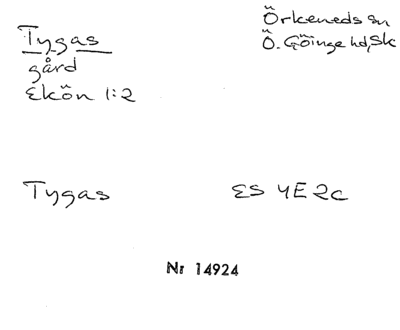 Tygas
gård
Ekön 1:2
Örkeneds sn
Ö. Göinge hd, Sk
Tygas
ES 4E2c
Nr 14924